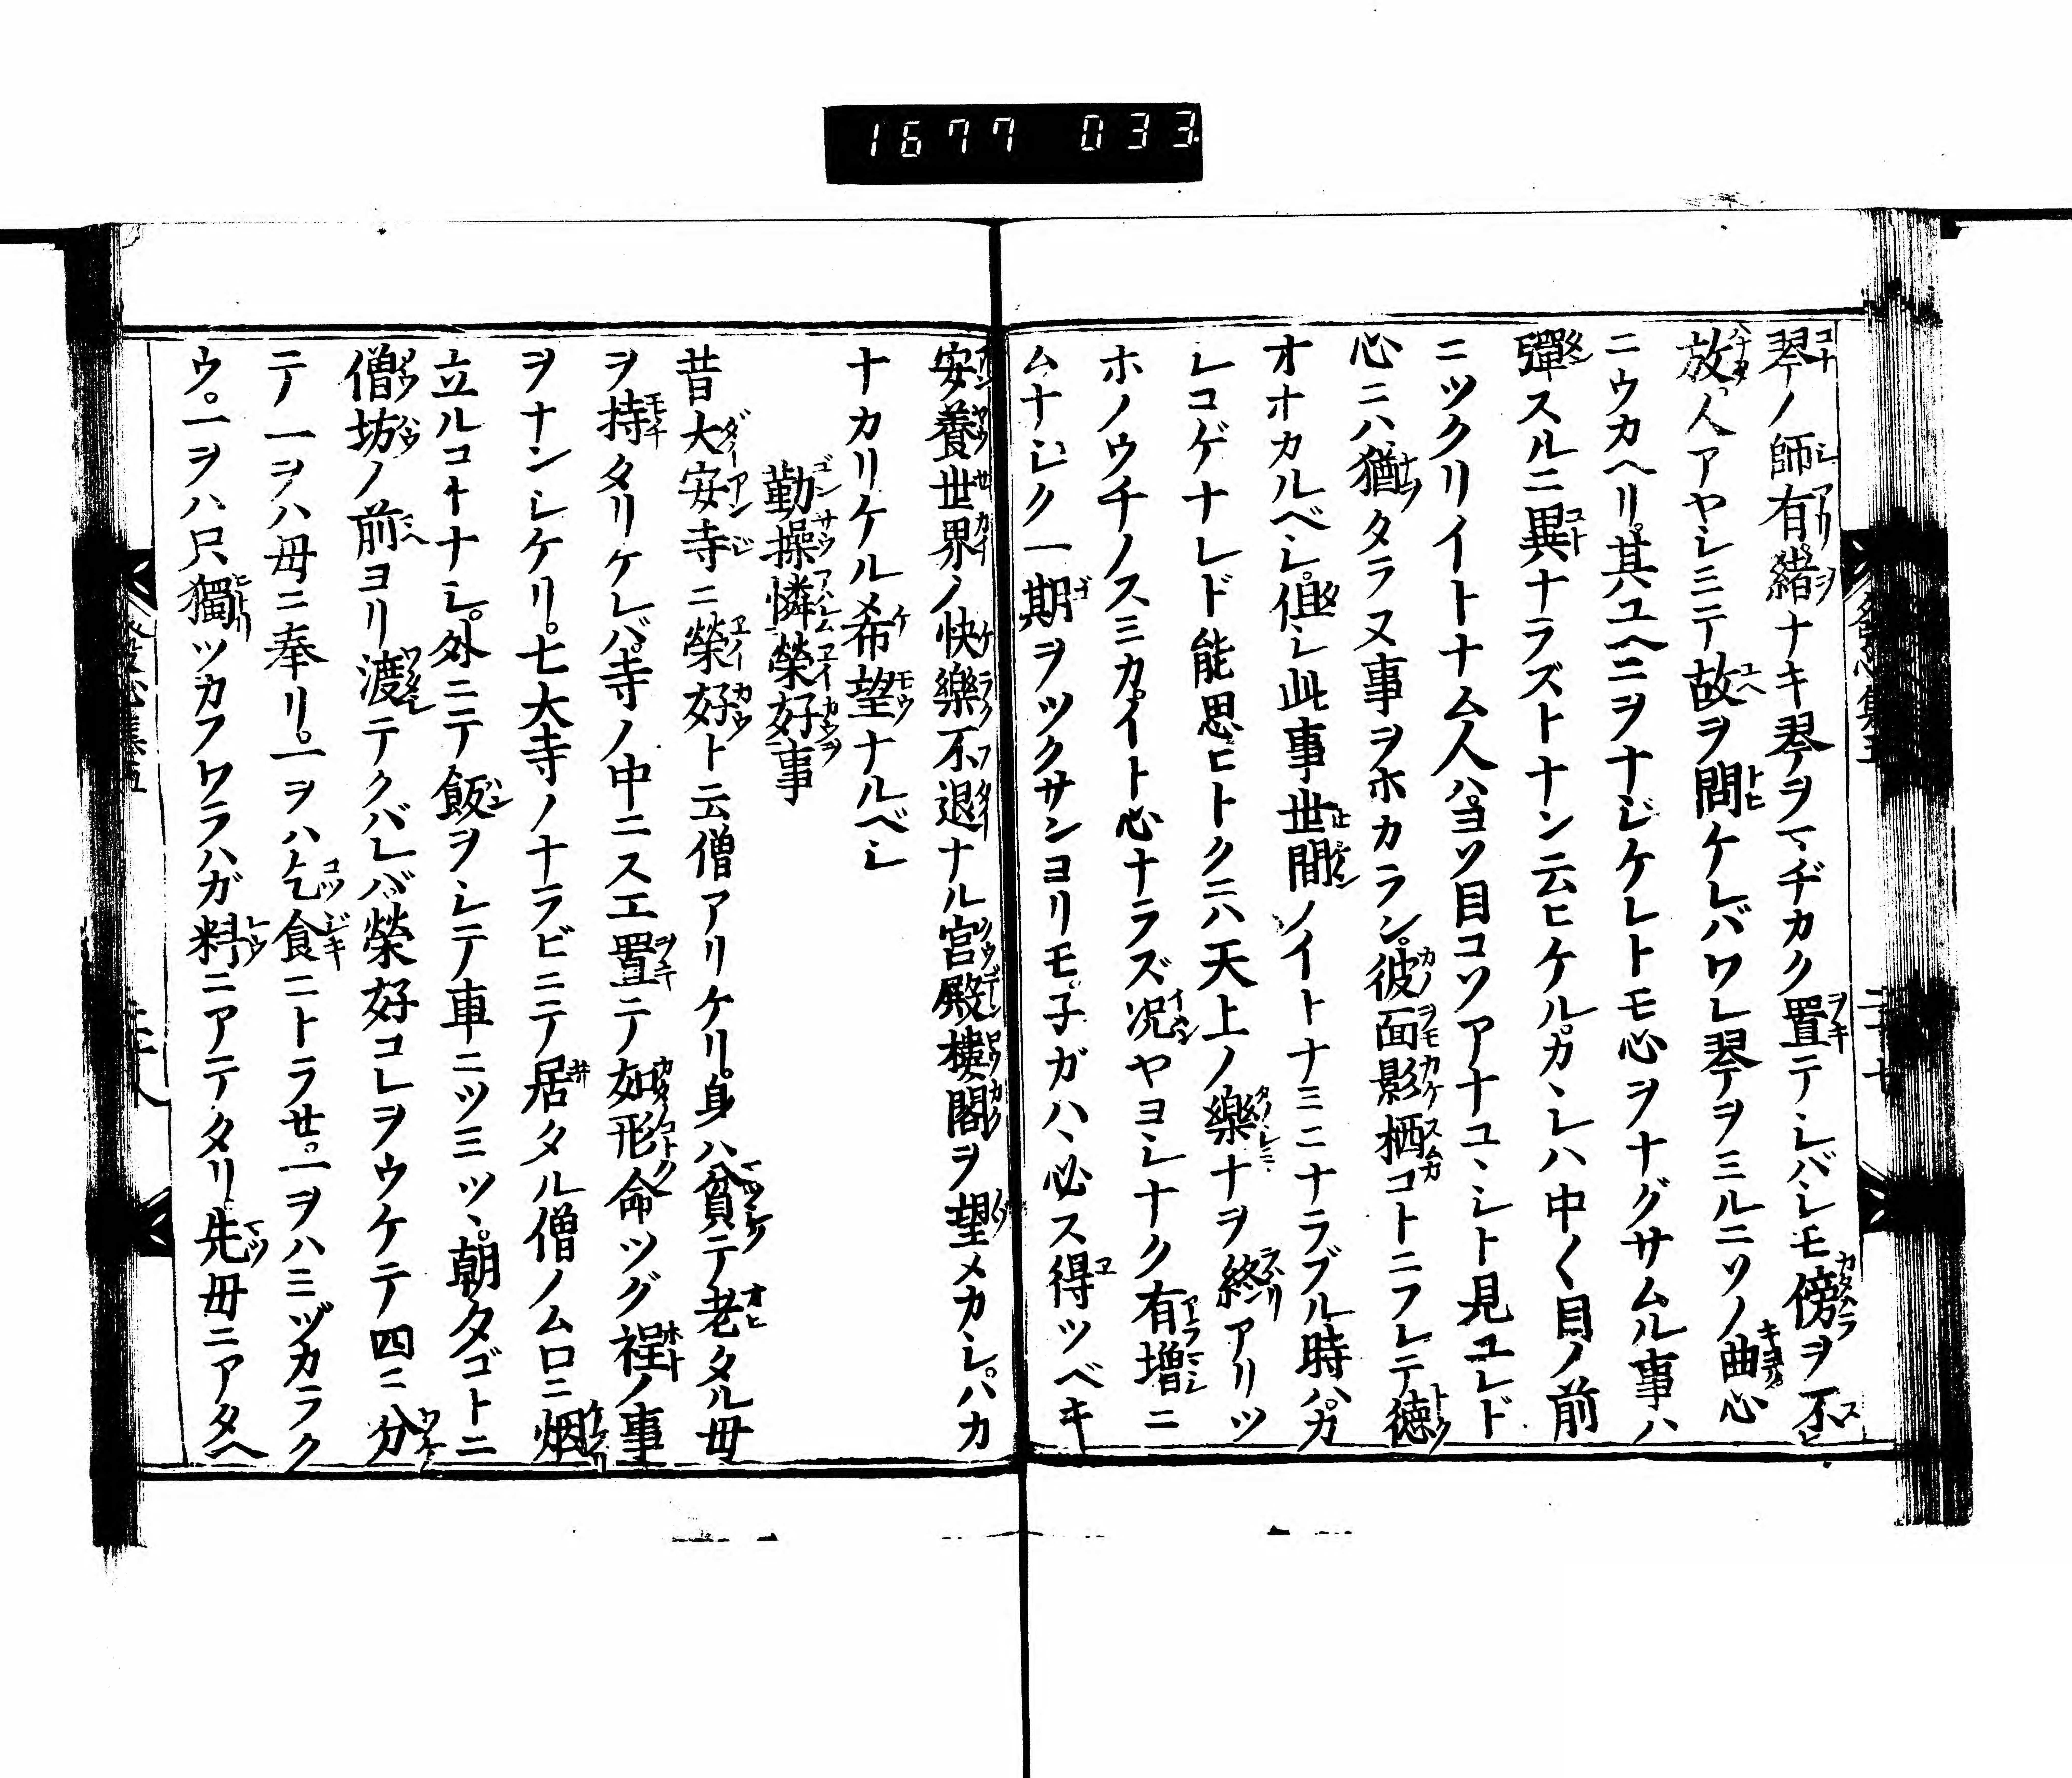 1677 033
琴ノ師有緒ナキ琴ヲマヂカク置テシバシモ傍ヲ不
放人アヤシミテ故ヲ問ケレバワレ琴ヲミルニソノ曲心
ニウカヘリ。其ユヘニヲナジケレトモ心ヲナグサムル事ハ
彈スルニ異ナラズトナン云ヒケル。カヽレハ中〱目ノ前
ニツクリイトナム人ハヨソ目コソアナユヽシト見ユレド
心ニハ猶タラヌ事ヲホカラン。彼面影栖コトニフレテ徳
オオカルベシ。但シ此事世間ノイトナミニナラブル時ハカ
シコゲナレド能思ヒトクニハ天上ノ樂ナヲ終アリツ
ホノウチノスミカイト心ナラズ况ヤヨシナク有増ニ
ムナシク一期ヲツクサンヨリモ。子ガハヽ必ス得ツベキ
安養世界ノ快樂不退ナル宮殿樓閣ヲ望メカシ。ハカ
ナカリケル希望ナルベシ
勤操憐榮好事
昔大安寺ニ榮好ト云僧アリケリ。身ハ貧テ老タル母
ヲ持タリケレバ寺ノ中ニスエ置テ如形命ツグ程ノ事
ヲナンシケリ。七大寺ノナラビニテ居タル僧ノムロニ烟
立ルコトナシ。外ニテ飯ヲシテ車ニツミツヽ。朝夕ゴトニ
僧坊ノ前ヨリ渡テクバレバ榮好コレヲウケテ四ニ分
テ一ヲハ母ニ奉リ。一ヲハ乞食ニトラせ。一ヲハミヅカラク
ウ。一ヲハ只獨ツカフワラハガ料ニアテタリ先母ニアタヘ